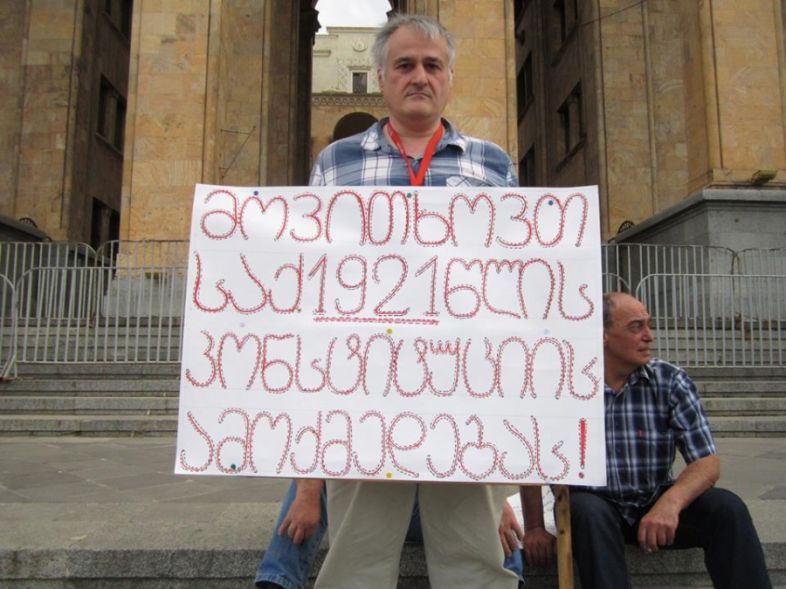 მოვითხოვთ
საქ.1921წლის
კონსტიტუციის
ამოქმედებას!